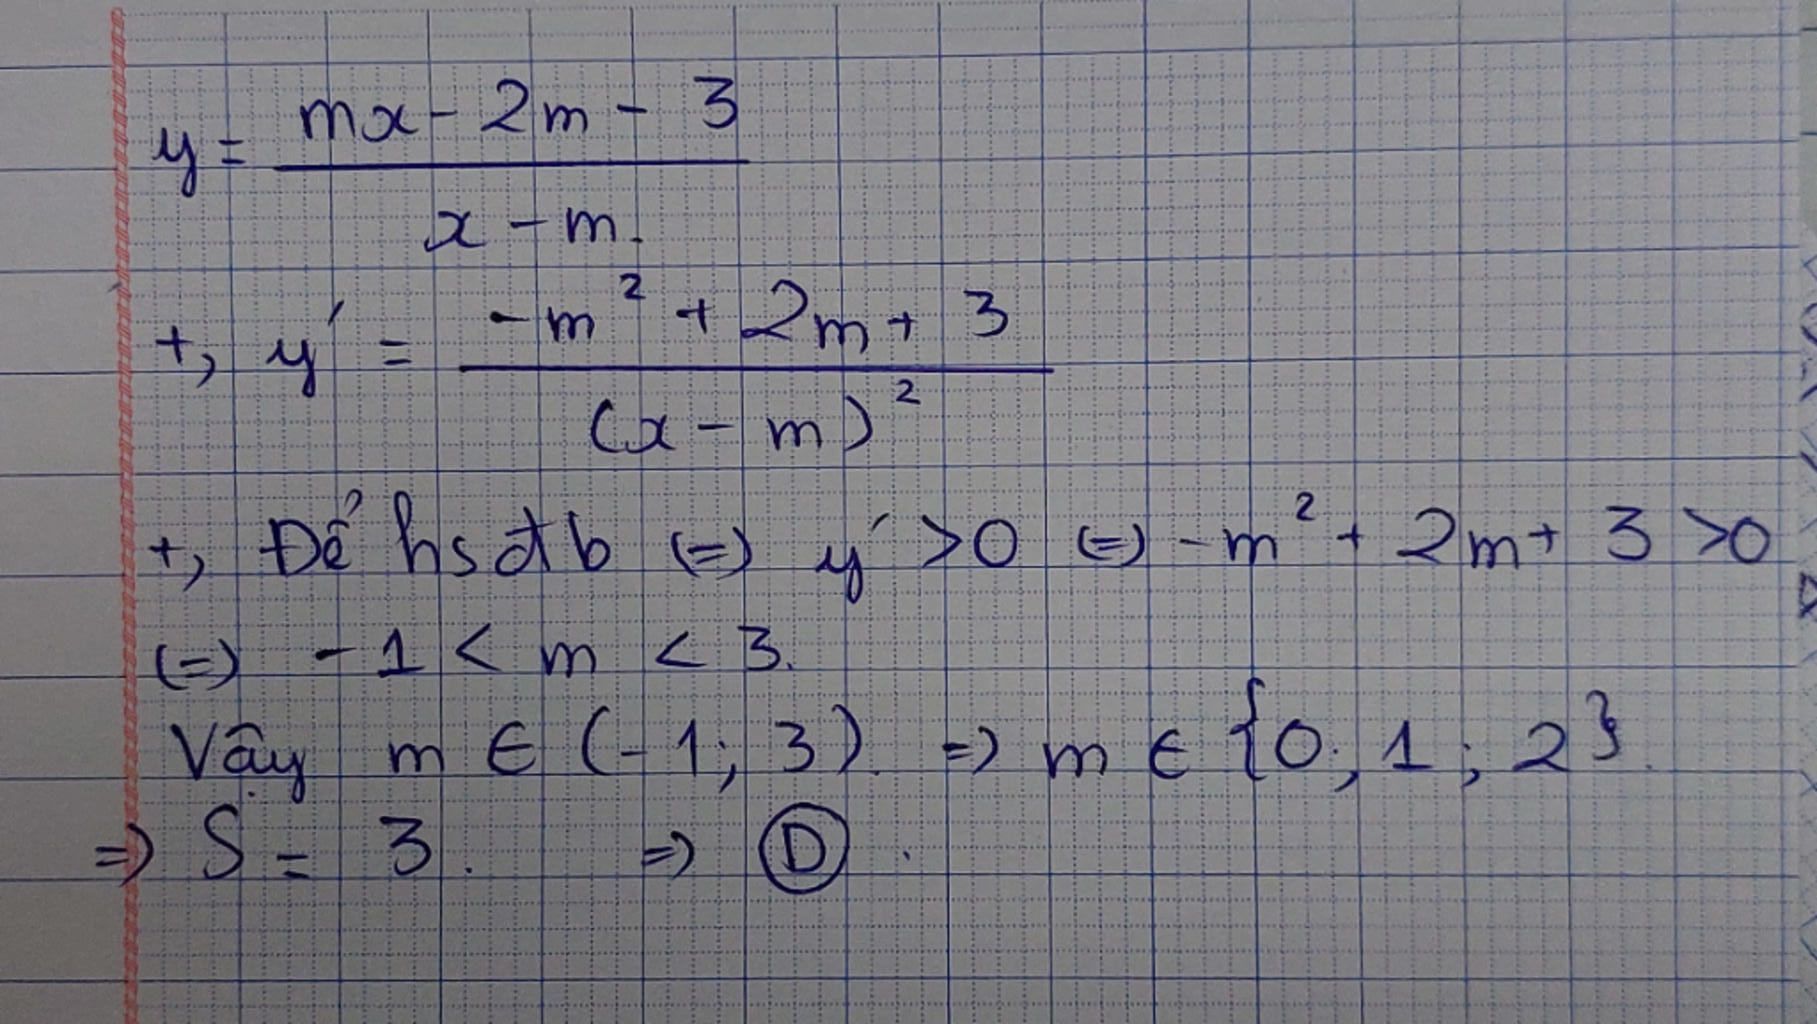 y = (mx - 2m - 3) / (x - m).
+, y' = (-m² + 2m + 3) / (x - m)²
+, Để hs đb (=) y' >0 (=) -m² + 2m + 3 >0
(=) -1 < m < 3.
Vậy m ∈ (-1; 3). => m ∈ {0; 1; 2}.
=> S = 3. => D.